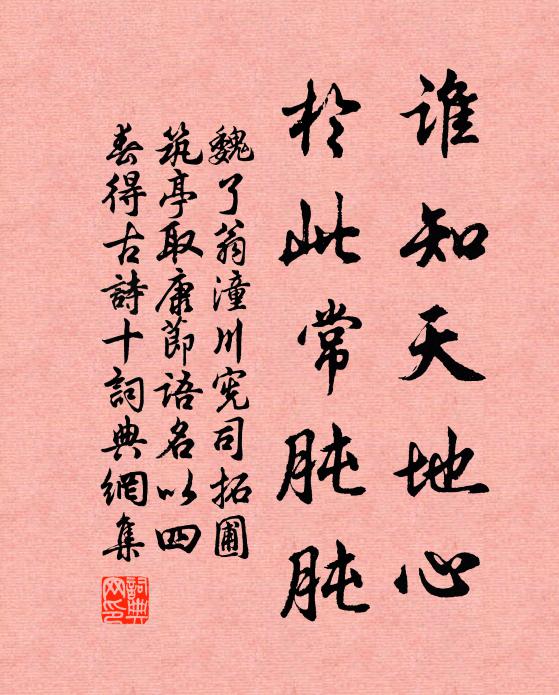 谁知天地心
於此常肫肫
魏了翁潼川宪司拓圃
筑亭取康節语名以四
春得古詩十詞典網集
詞典网印